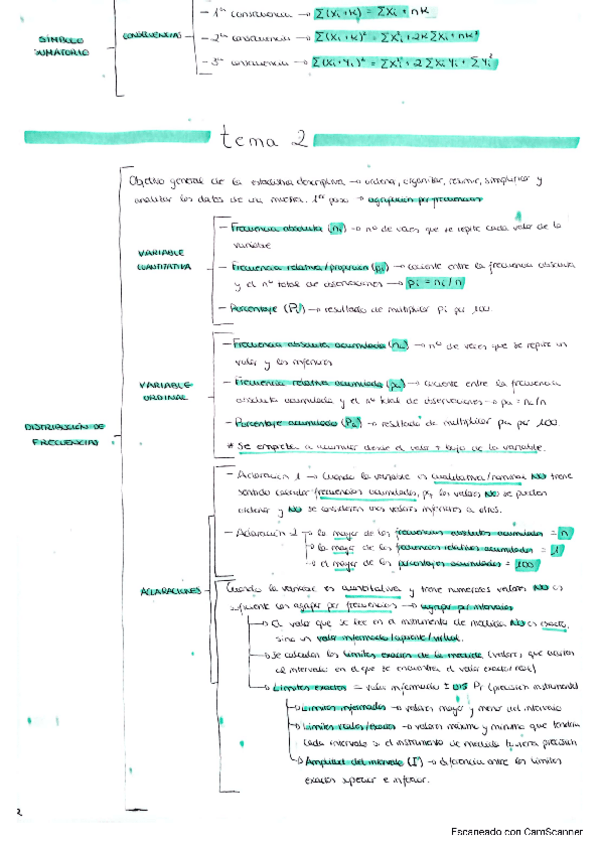 SÍMBOLO SUMATORIO
CONSECUENCIAS
- 1ª consecuencia → Σ(Xi+K) = ΣXi + nK
- 2ª consecuencia → Σ(Xi+K)² = ΣXi² + 2KΣXi + nK²
- 3ª consecuencia → Σ(Xi+Yi)² = ΣXi² + 2ΣXiYi + ΣYi²
tema 2
DISTRIBUCIÓN DE FRECUENCIAS
Objetivo general de la estadística descriptiva → ordenar, organizar, resumir, simplificar y
analizar los datos de una muestra. 1er paso → agrupación por frecuencias
VARIABLE CUANTITATIVA
- Frecuencia absoluta (ni) → nº de veces que se repite cada valor de la
variable
- Frecuencia relativa/proporción (pi) → cociente entre la frecuencia absoluta
y el nº total de observaciones → pi = ni/n
- Porcentaje (Pi) → resultado de multiplicar pi por 100.
VARIABLE ORDINAL
- Frecuencia absoluta acumulada (na) → nº de veces que se repite un
valor y los inferiores
- Frecuencia relativa acumulada (pa) → cociente entre la frecuencia
absoluta acumulada y el nº total de observaciones → pa = na/n
- Porcentaje acumulado (Pa) → resultado de multiplicar pa por 100.
* Se empieza a acumular desde el valor + bajo de la variable.
ACLARACIONES
- Aclaración 1 → Cuando la variable es cualitativa/nominal NO tiene
sentido calcular frecuencias acumuladas, pq los valores NO se pueden
ordenar y NO se consideran unos valores inferiores a otros.
- Aclaración 2 → la mayor de las frecuencias absolutas acumuladas = n
→ la mayor de las frecuencias relativas acumuladas = 1
→ el mayor de los porcentajes acumulados = 100
Cuando la variable es cuantitativa y tiene numerosos valores NO es
suficiente con agrupar por frecuencias → agrupar por intervalos
→ El valor que se lee en el instrumento de medida NO es exacto,
sino un valor informado/aparente/virtual.
→ Se calculan los límites exactos de la medida (valores que acotan
el intervalo en el que se encuentra el valor exacto real)
→ Límites exactos = valor informado ± 0'5 Pi (precisión instrumento)
→ Límites informados → valores mayor y menor del intervalo
→ Límites reales/exactos → valores máximo y mínimo que tendría
cada intervalo si el instrumento de medida tuviera precisión
→ Amplitud del intervalo (I) → diferencia entre los límites
exactos superior e inferior.
2
Escaneado con CamScanner